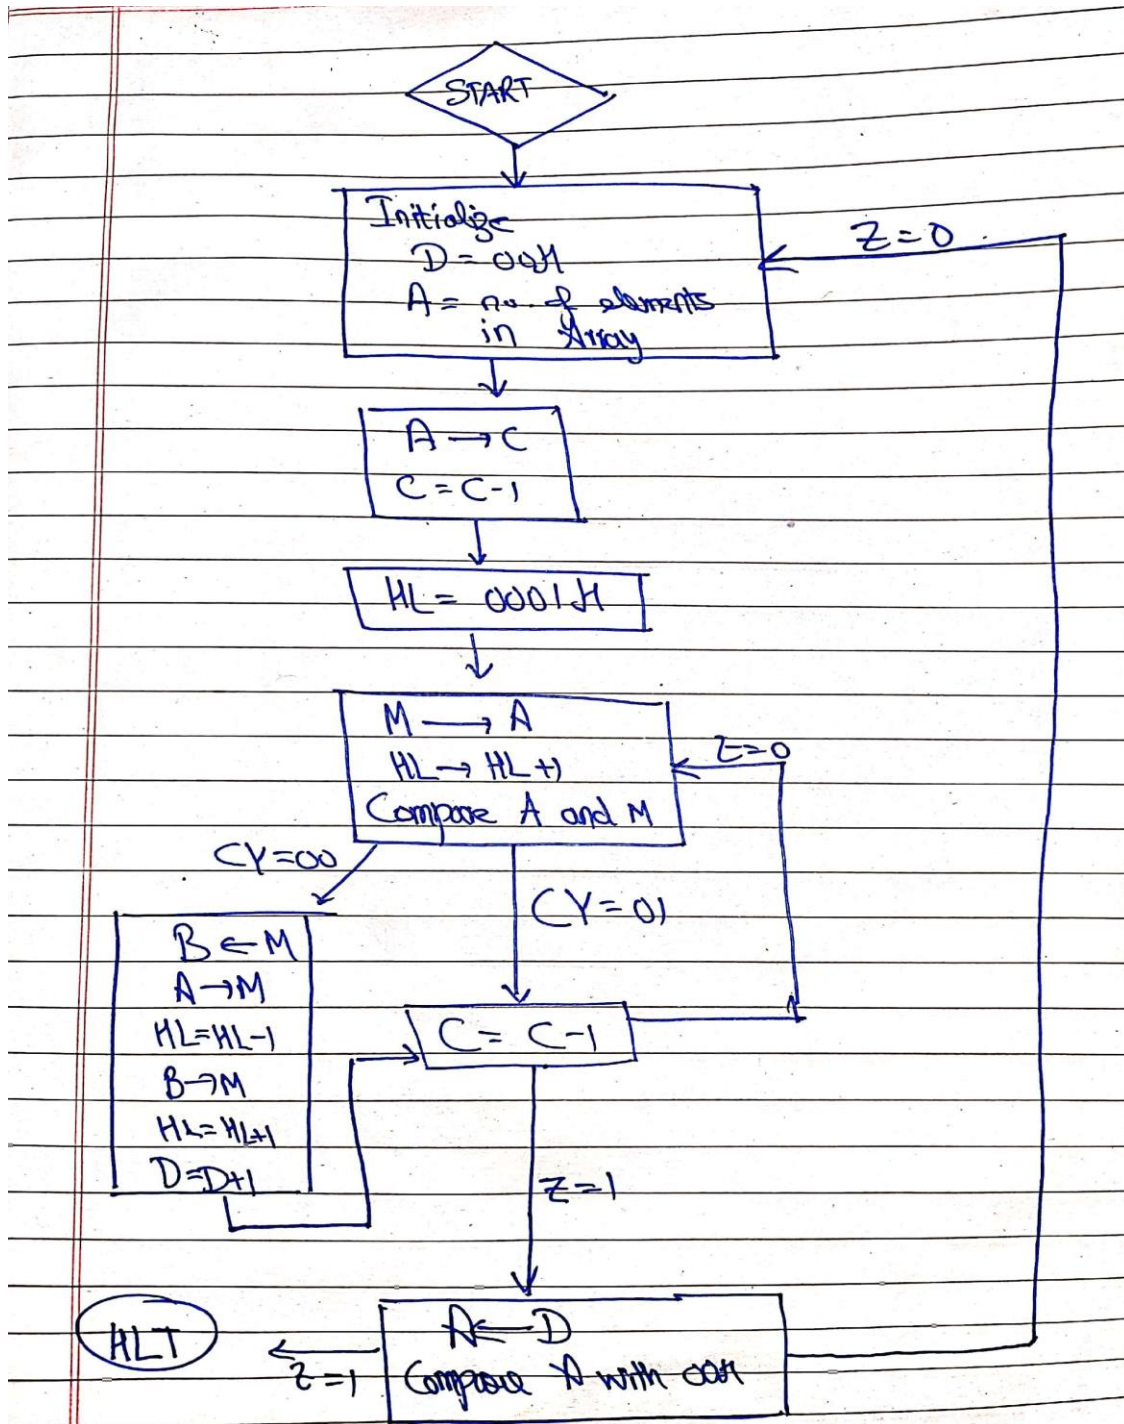 START
Initialize
D = 00H
A = no. of elements
in Array
Z = 0
A → C
C = C-1
HL = 0001H
M → A
HL → HL+1
Compare A and M
Z=0
CY=00
CY=01
B ← M
A → M
HL=HL-1
B → M
HL=HL+1
D=D+1
C = C-1
Z=1
A ← D
Compare A with 00H
Z=1
HLT